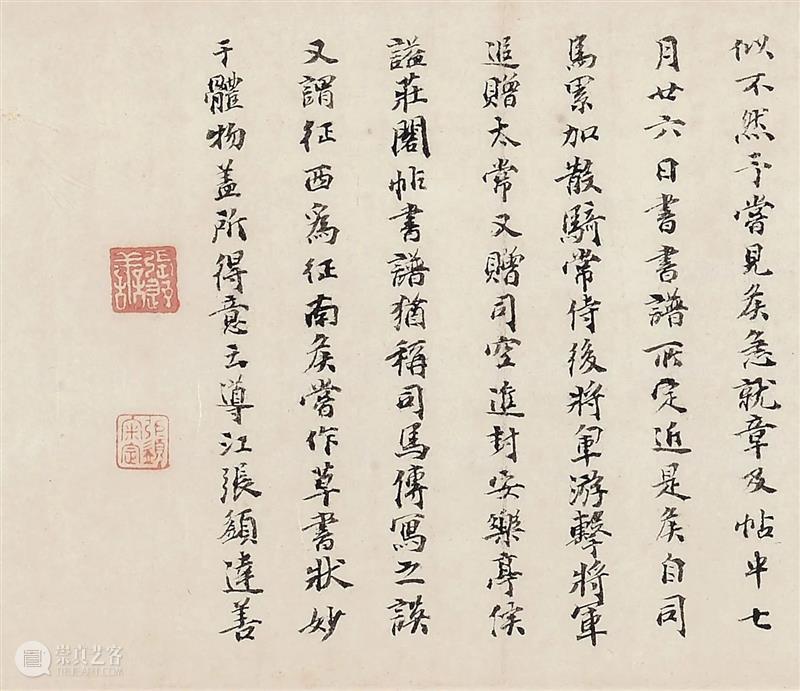 似不然予嘗見矦急就章及帖中七
月廿六日書書譜所定近是矦自司
馬累加散騎常侍後將軍游擊將軍
追贈太常又贈司空進封安樂亭侯
謚莊閣帖書譜猶稱司馬傳寫之誤
又謂征西爲征南矦嘗作草書狀妙
于體物蓋所得意云導江張䇓達善
崇真艺客